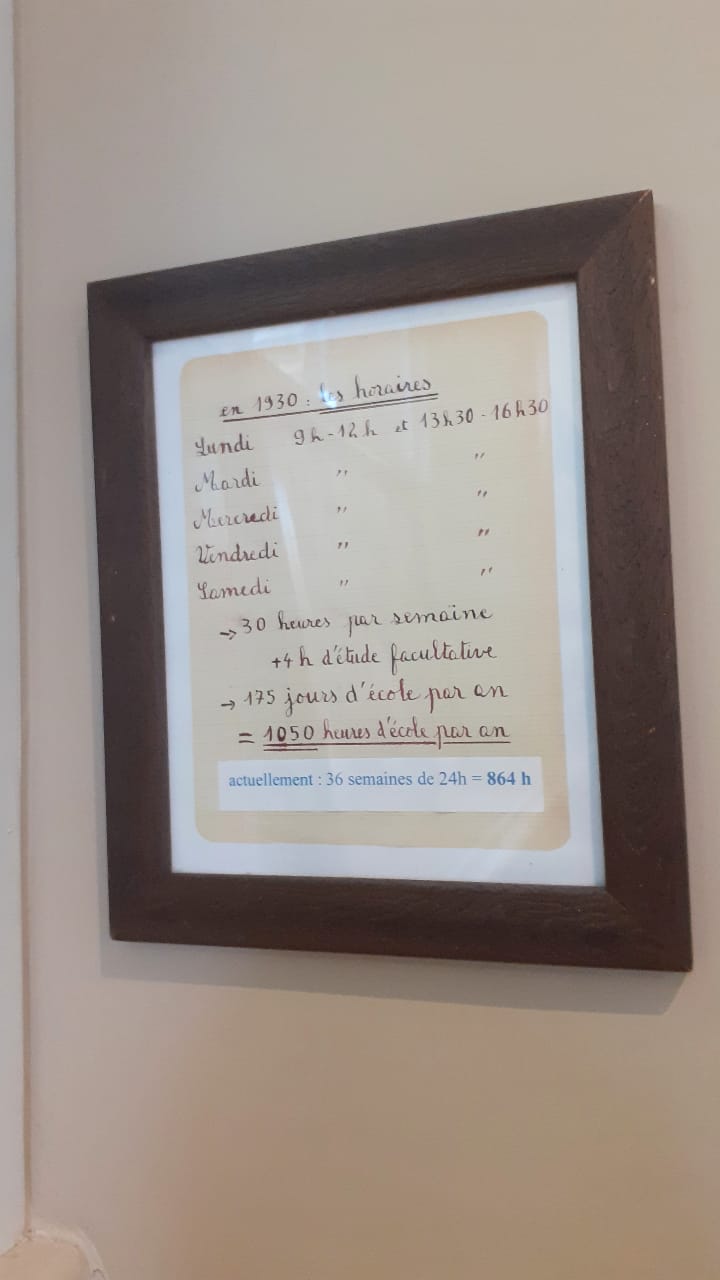 en 1930 : les horaires
Lundi 9h-12h et 13h30-16h30
Mardi " "
Mercredi " "
Vendredi " "
Samedi " "
→ 30 heures par semaine
+4h d'étude facultative
→ 175 jours d'école par an
= 1050 heures d'école par an
actuellement : 36 semaines de 24h = 864 h